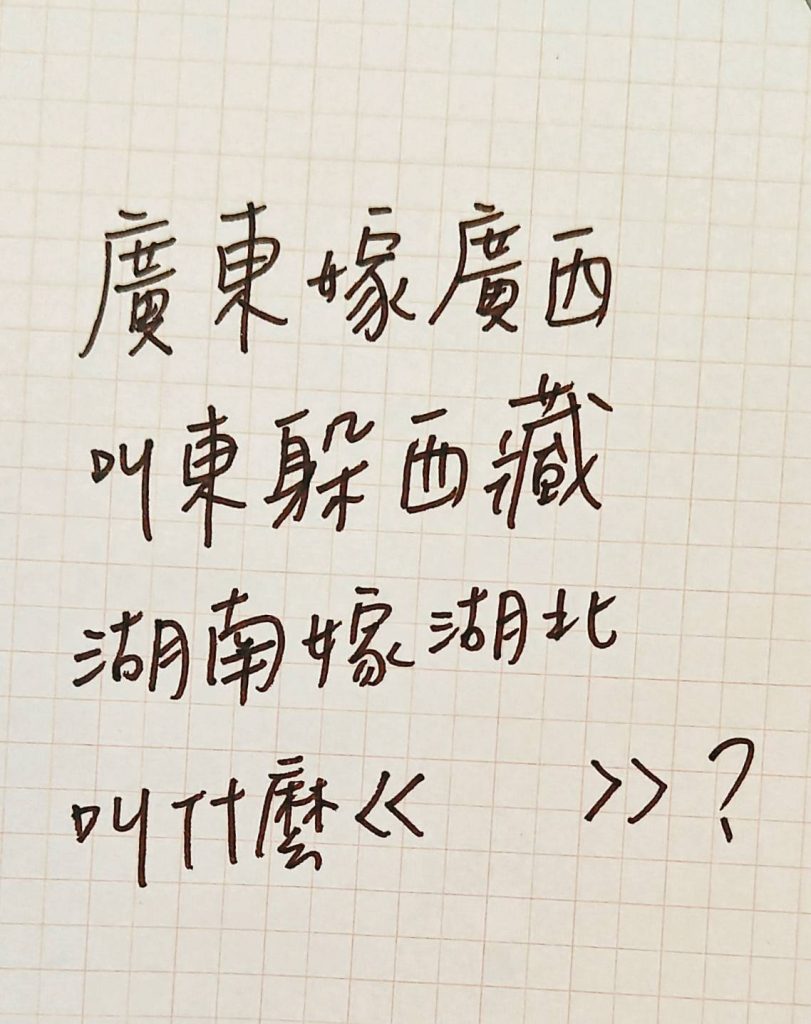 廣東嫁廣西
叫東躲西藏
湖南嫁湖北
叫什麼《　　》？